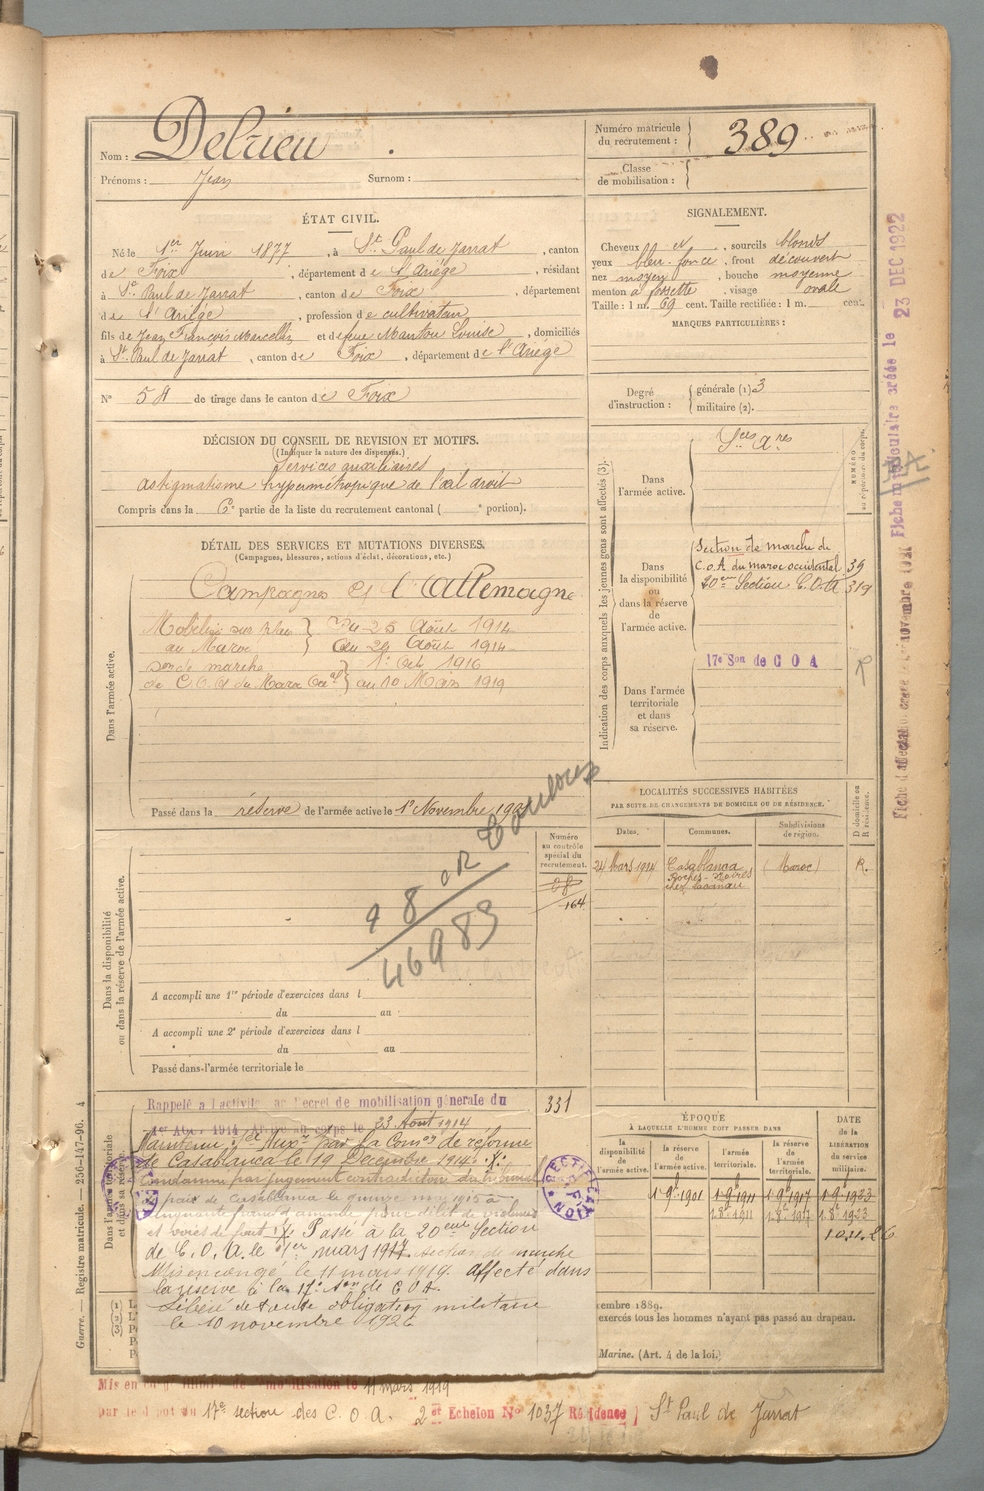 Nom : Delrieu
Prénoms : Jean Surnom :
Numéro matricule du recrutement : 389
Classe de mobilisation :
ÉTAT CIVIL.
Né le 1er Juin 1877, à St Paul de Jarrat, canton
de Foix, département de l'Ariège, résidant
à St Paul de Jarrat, canton de Foix, département
de l'Ariège, profession de cultivateur
fils de Jean François Marcellin et de feue Manton Louise, domiciliés
à St Paul de Jarrat, canton de Foix, département de l'Ariège
N° 58 de tirage dans le canton de Foix
SIGNALEMENT.
Cheveux et, sourcils blonds
yeux bleu-foncé, front découvert
nez moyen, bouche moyenne
menton à fossette, visage ovale
Taille : 1 m. 69 cent. Taille rectifiée : 1 m. cent.
MARQUES PARTICULIÈRES :
Degré d'instruction : générale (1) 3
militaire (2).
DÉCISION DU CONSEIL DE REVISION ET MOTIFS.
(Indiquer la nature des dispenses.)
Services auxiliaires
astigmatisme hypermétropique de l'œil droit
Compris dans la 6e partie de la liste du recrutement cantonal ( e portion).
DÉTAIL DES SERVICES ET MUTATIONS DIVERSES.
(Campagnes, blessures, actions d'éclat, décorations, etc.)
Dans l'armée active.
Campagnes l'Allemagne
Mobilisé sur place } Du 23 Août 1914
au Maroc } au 29 Août 1914
Son de marche } 1er Oct 1916
de C.O.A du Maroc Occal } au 10 Mars 1919
Passé dans la réserve de l'armée active le 1er Novembre
Toulouse
46983
Indication des corps auxquels les jeunes gens sont affectés (3).
NUMÉRO
Dans l'armée active.
Sces ares
Dans la disponibilité ou dans la réserve de l'armée active.
Section de marche de
C.O.A du maroc occidental 39
20eme Section C.O.A 319
Dans l'armée territoriale et dans sa réserve.
17e Son de C O A
R
Fiche matriculaire créée le 23 DEC 1922
LOCALITÉS SUCCESSIVES HABITÉES
PAR SUITE DE CHANGEMENTS DE DOMICILE OU DE RÉSIDENCE.
Dates. Communes. Subdivisions de région. D domicile ou R résidence.
24 Mars 1914 Casablanca (Maroc) R.
Roches-Noires
Dans la disponibilité ou dans la réserve de l'armée active.
Numéro au contrôle spécial du recrutement.
164
A accompli une 1re période d'exercices dans l
du au
A accompli une 2e période d'exercices dans l
du au
Passé dans l'armée territoriale le
Dans l'armée territoriale et dans sa réserve.
Rappelé à l'activité Décret de mobilisation générale du 331
1er Août 1914 Arrivé au corps le 23 Août 1914
Maintenu Sce Auxre par la Comon de réforme
de Casablanca le 19 Décembre 1914.
Condamné par jugement contradictoire du tribunal
paix de Casablanca le quinze mai 1915 à
cinquante francs d'amende pour délit de violences
et voies de fait Passé à la 20eme Section
de C.O.A. le 1er mars 1917. section de marche
Mis en congé le 11 mars 1919. affecté dans
la réserve à la 17e Son de C O A.
Libéré de toute obligation militaire
le 10 novembre 1926
RECTIFICATION
ÉPOQUE
À LAQUELLE L'HOMME DOIT PASSER DANS
la disponibilité de l'armée active. la réserve de l'armée active. l'armée territoriale. la réserve de l'armée territoriale.
DATE de la LIBÉRATION du service militaire.
1.9.1901 1.9.1911 1.9.1917 1.9.1923
1.8.1911 1.8.1917 1.8.1923
10.11.26
embre 1889.
exercés tous les hommes n'ayant pas passé au drapeau.
Marine. (Art. 4 de la loi.)
Guerre. — Registre matricule. — 256-147-96. 4
Mis en mobilisation le 11 mars 1919
par le dépot du 17e section des C. O. A. 2e Echelon N° 1037 Résidence St Paul de Jarrat